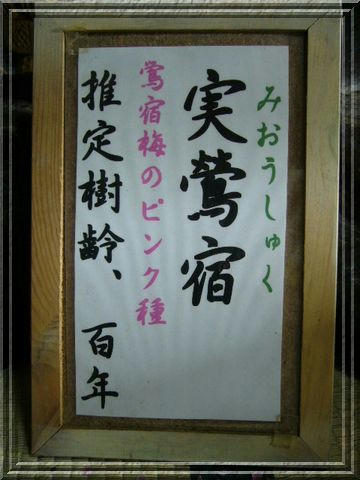 みおうしゅく
実鶯宿
鶯宿梅のピンク種
推定樹齢、百年